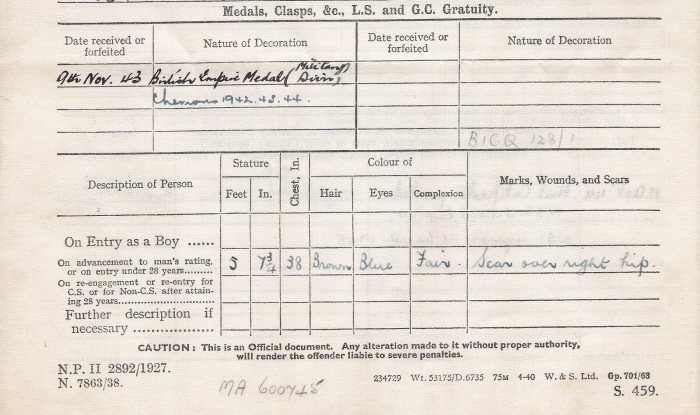 Medals, Clasps, &c., L.S. and G.C. Gratuity.
Date received or forfeited Nature of Decoration Date received or forfeited Nature of Decoration
9th Nov. 43 British Empire Medal (Military Divn)
Chevrons 1942.43.44.
BICQ 128/1
Description of Person Stature Feet In. Chest, In. Colour of Hair Eyes Complexion Marks, Wounds, and Scars
On Entry as a Boy ......
On advancement to man's rating, or on entry under 28 years......... 5 7¾ 38 Brown Blue Fair. Scar over right hip.
On re-engagement or re-entry for C.S. or for Non-C.S. after attaining 28 years........................
Further description if necessary ..................
CAUTION: This is an Official document. Any alteration made to it without proper authority,
will render the offender liable to severe penalties.
N.P. II 2892/1927.
N. 7863/38.
MA 600745
234729 Wt. 53175/D.6735 75M 4-40 W. & S. Ltd. Gp. 701/63
S. 459.